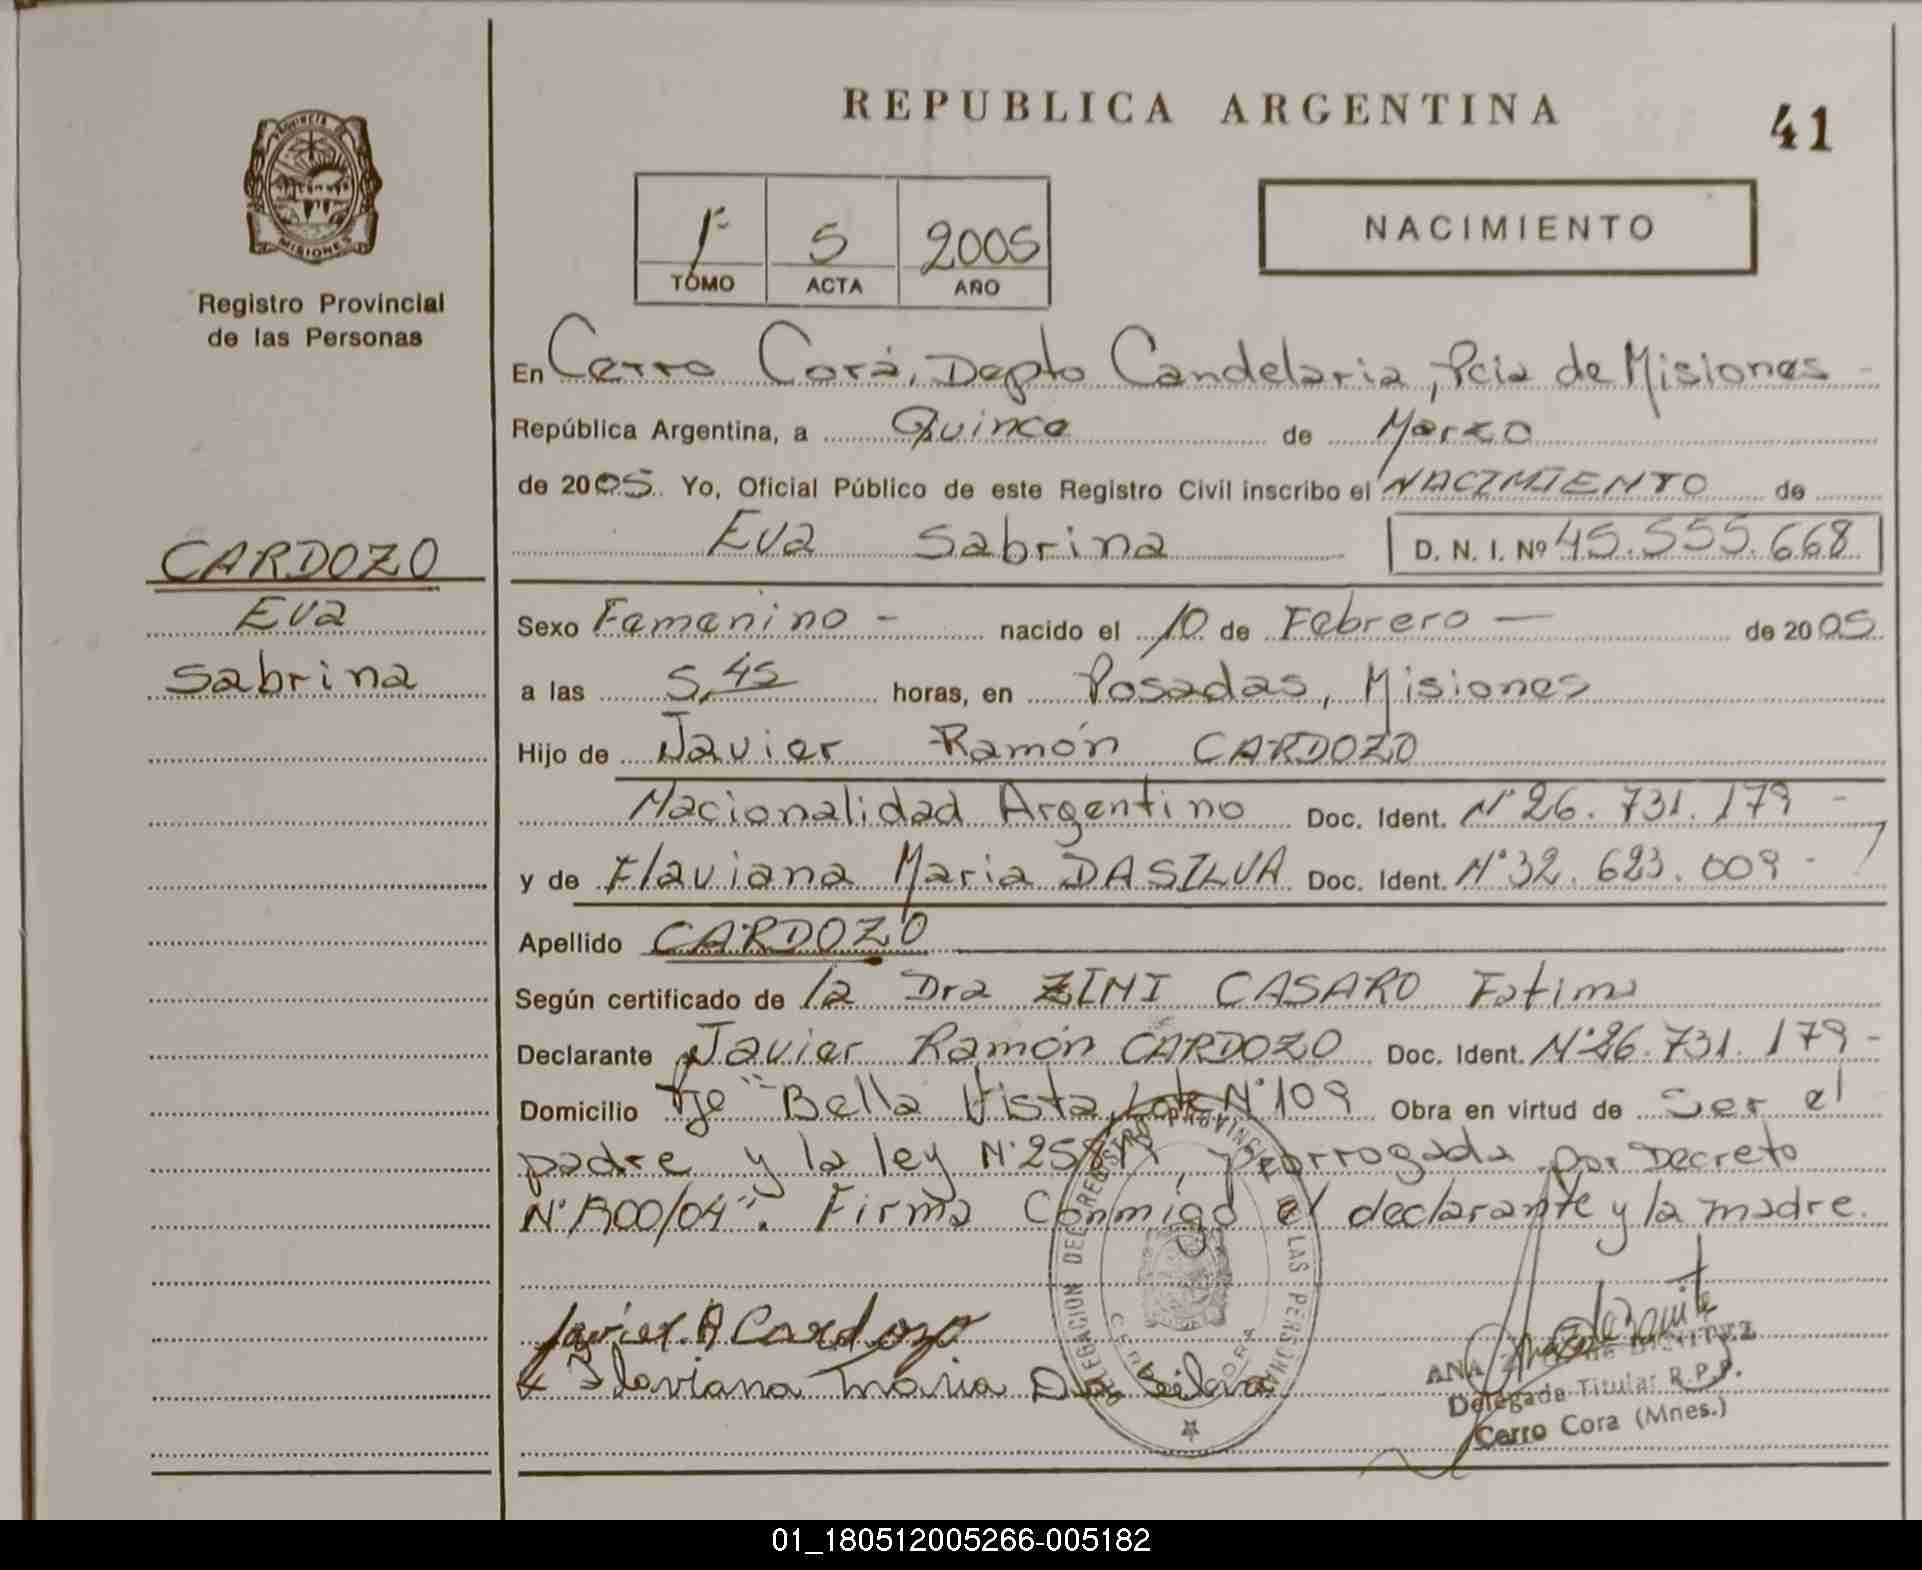 REPUBLICA ARGENTINA
41
PROVINCIA DE
MISIONES
Registro Provincial
de las Personas
1º 5 2005
TOMO ACTA AÑO
NACIMIENTO
En Cerro Corá, Depto Candelaria, Pcia de Misiones -
República Argentina, a Quince de Marzo
de 2005. Yo, Oficial Público de este Registro Civil inscribo el NACIMIENTO de
Eva Sabrina D. N. I. Nº 45.555.668
CARDOZO
Eva
Sabrina
Sexo Femenino - nacido el 10 de Febrero — de 2005
a las 5,45 horas, en Posadas, Misiones
Hijo de Javier Ramón CARDOZO
Nacionalidad Argentino Doc. Ident. Nº 26.731.179 -
y de Flaviana Maria DASILVA Doc. Ident. Nº 32.623.009 -
Apellido CARDOZO
Según certificado de la Dra ZINI CASARO Fatima
Declarante Javier Ramón CARDOZO Doc. Ident. Nº 26.731.179 -
Domicilio Bella Vista, Lote Nº 109 Obra en virtud de Ser el
padre y la ley Nº 25819, prorrogada por Decreto
Firma Conmigo el declarante y la madre.
DELEGACION DEL REGISTRO PROVINCIAL DE LAS PERSONAS
CERRO CORA
Javier R Cardozo
Flaviana Maria Da Silva
ANA
Delegada Titular R.P.P.
Cerro Cora (Mnes.)
01_180512005266-005182